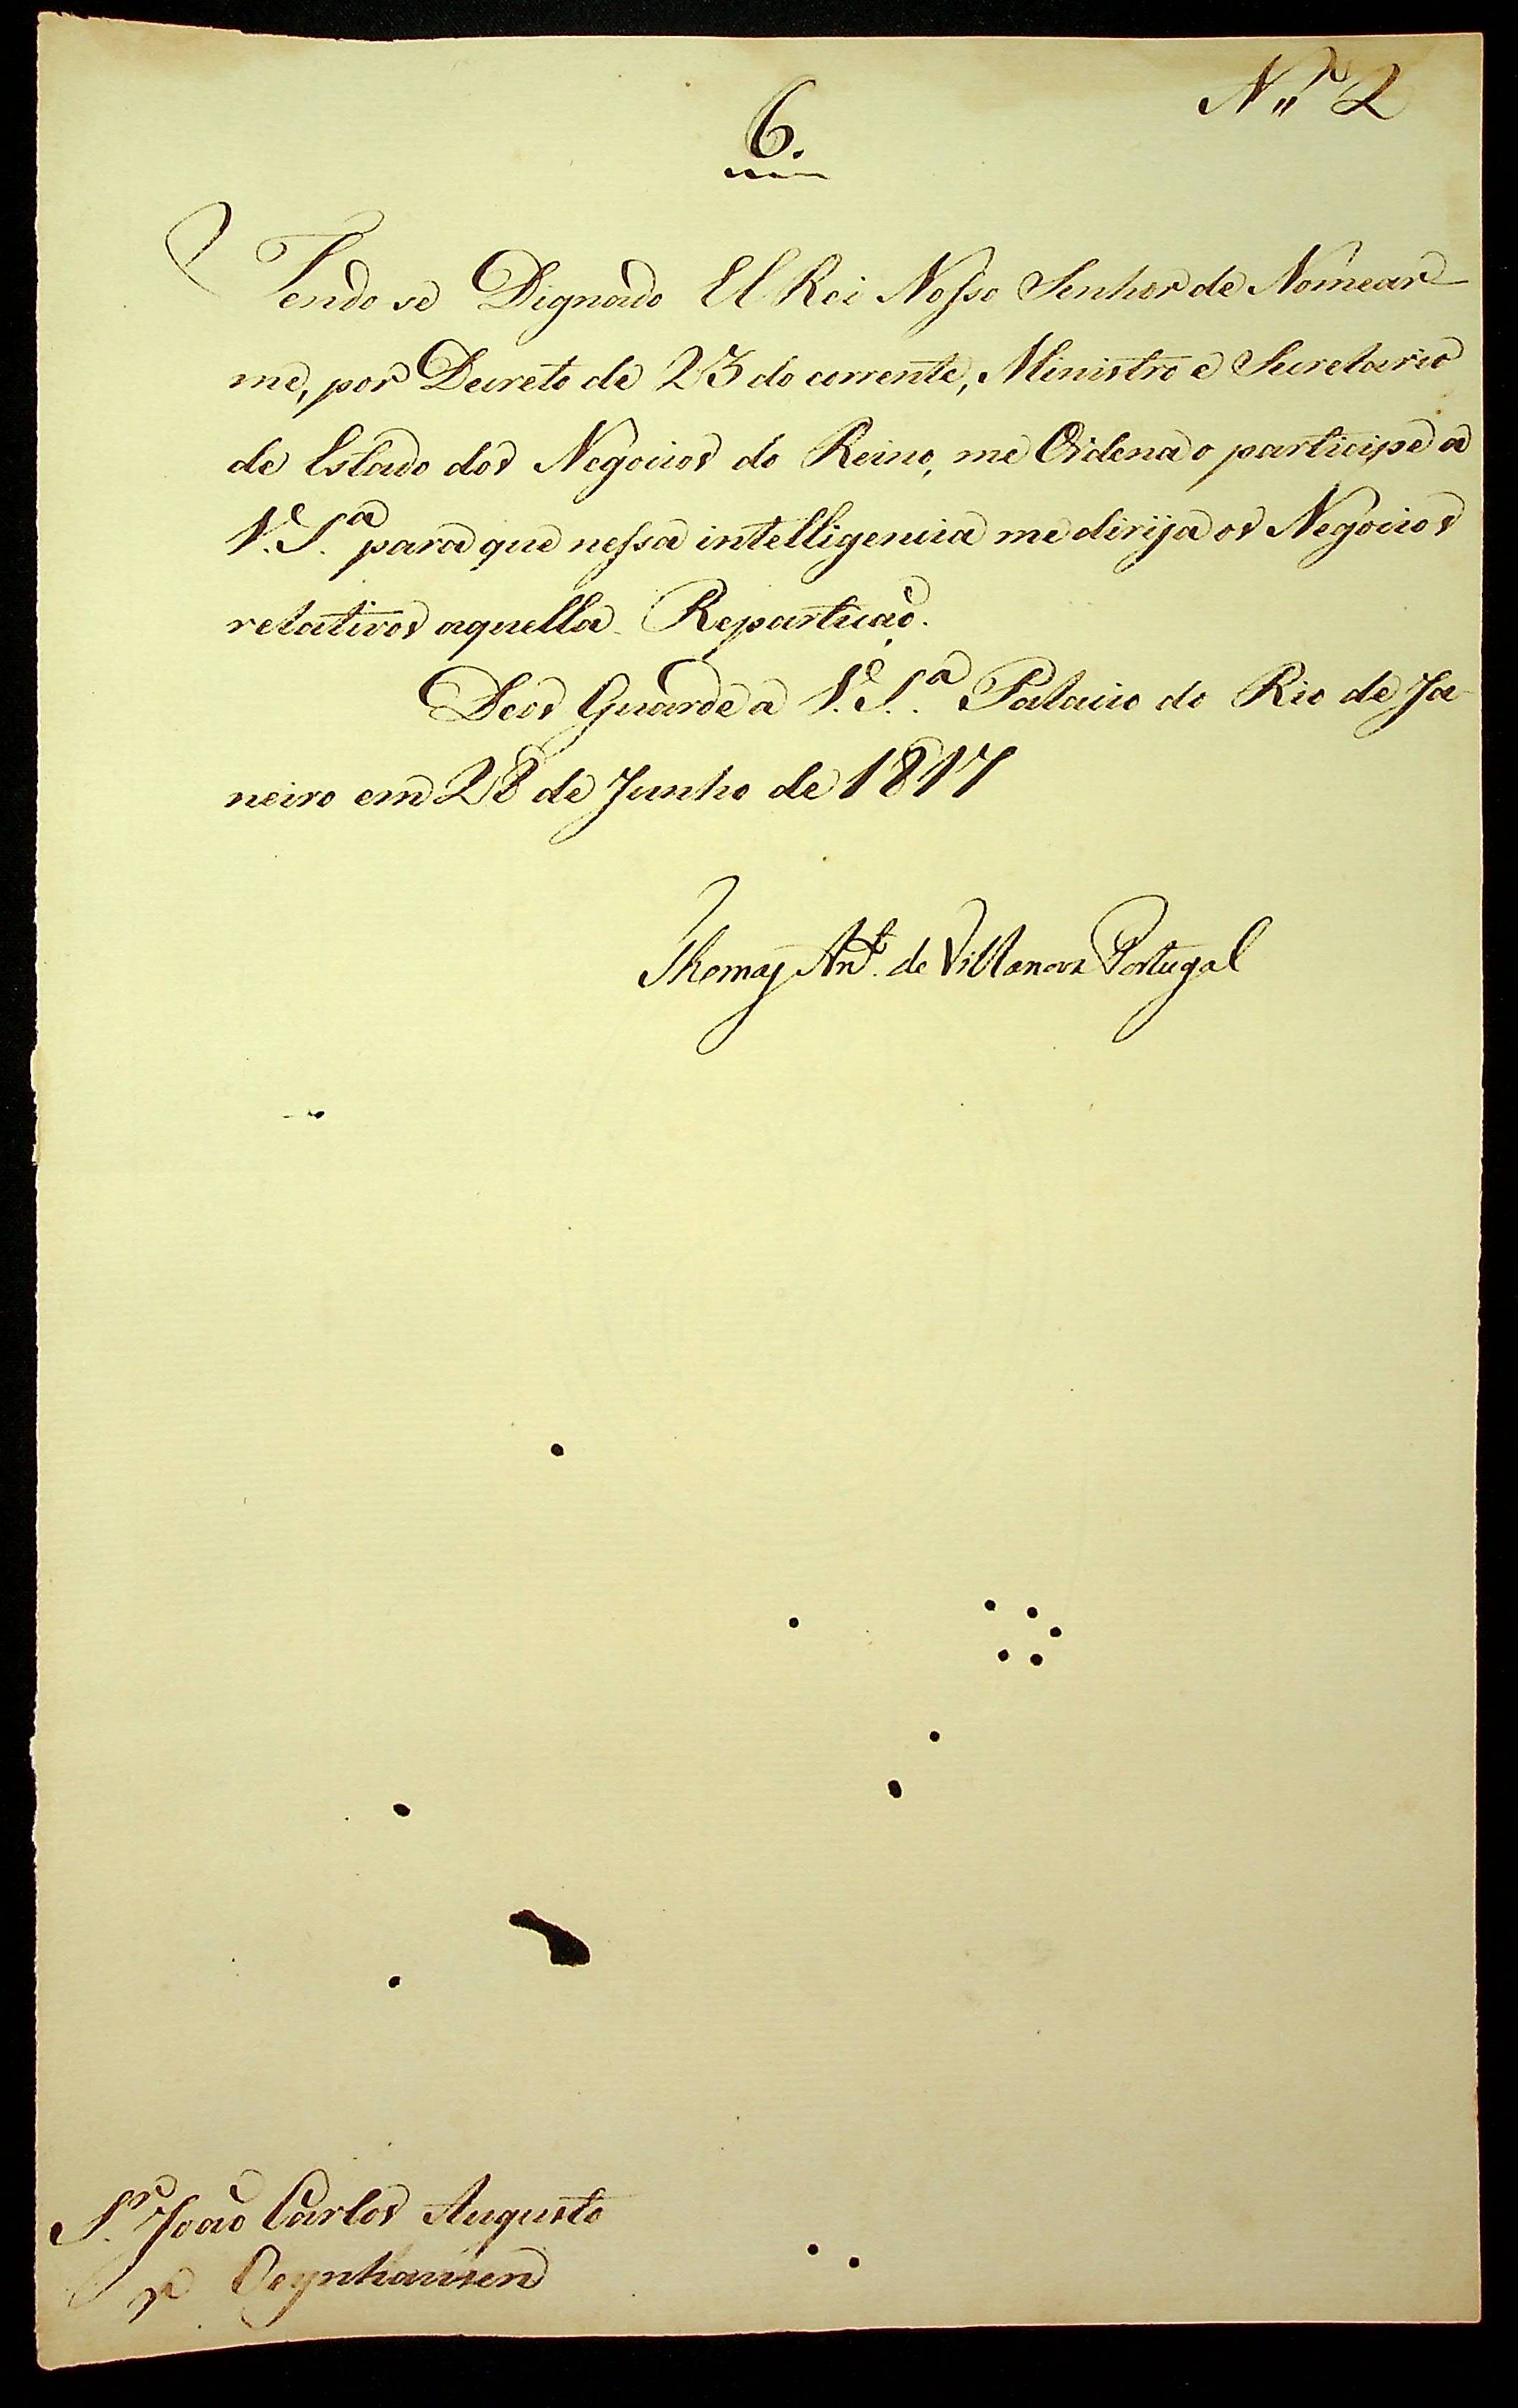 N.º 2
6.
Tendo se Dignado El Rei Nosso Senhor de Nomear-
me, por Decreto de 23 do corrente, Ministro e Secretario
de Estado dos Negocios do Reino, me Ordena o participe a
V. S.ª para que nessa intelligencia me dirija os Negocios
relativos aquella Repartição.
Deos Guarde a V. S.ª Palacio do Rio de Ja-
neiro em 28 de Junho de 1817
Thomaz Ant.º de Villanova Portugal
S.r João Carlos Augusto
Oeynhausen